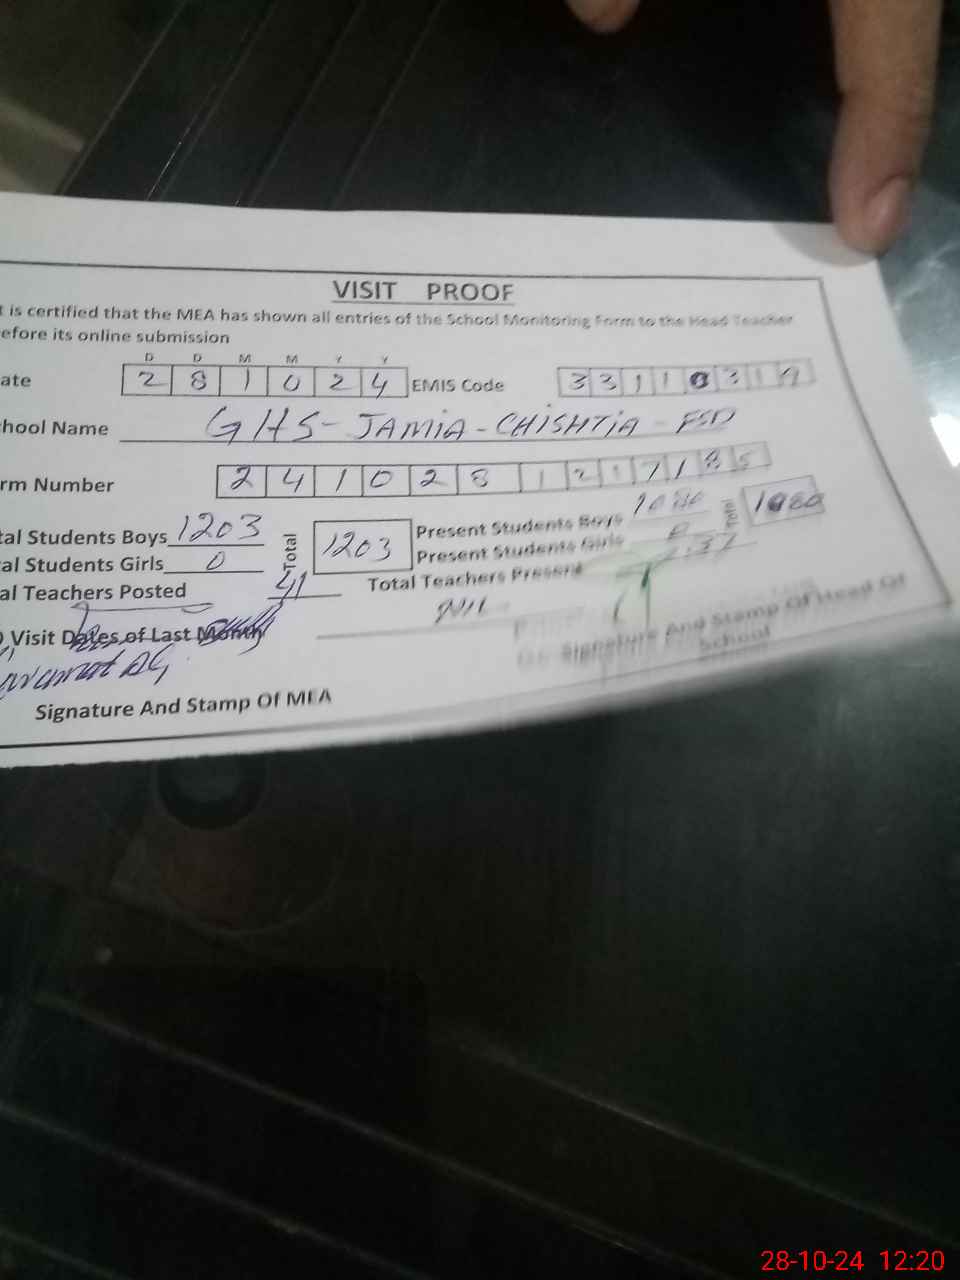 VISIT PROOF
t is certified that the MEA has shown all entries of the School Monitoring Form to the Head Teacher
efore its online submission
D D M M Y Y
ate 2 8 1 0 2 4 EMIS Code 3 3 1 1 0 3 1 9
hool Name GHS-JAMIA-CHISHTIA-FSD
rm Number 2 4 1 0 2 8 1 2 1 7 1 8 5
tal Students Boys 1203 Total 1203 Present Students Boys Total
al Students Girls 0 Present Students Girls
al Teachers Posted 41 Total Teachers Present
Visit Dates of Last Month Nil
Signature And Stamp Of Head Of
School
Signature And Stamp Of MEA
28-10-24 12:20